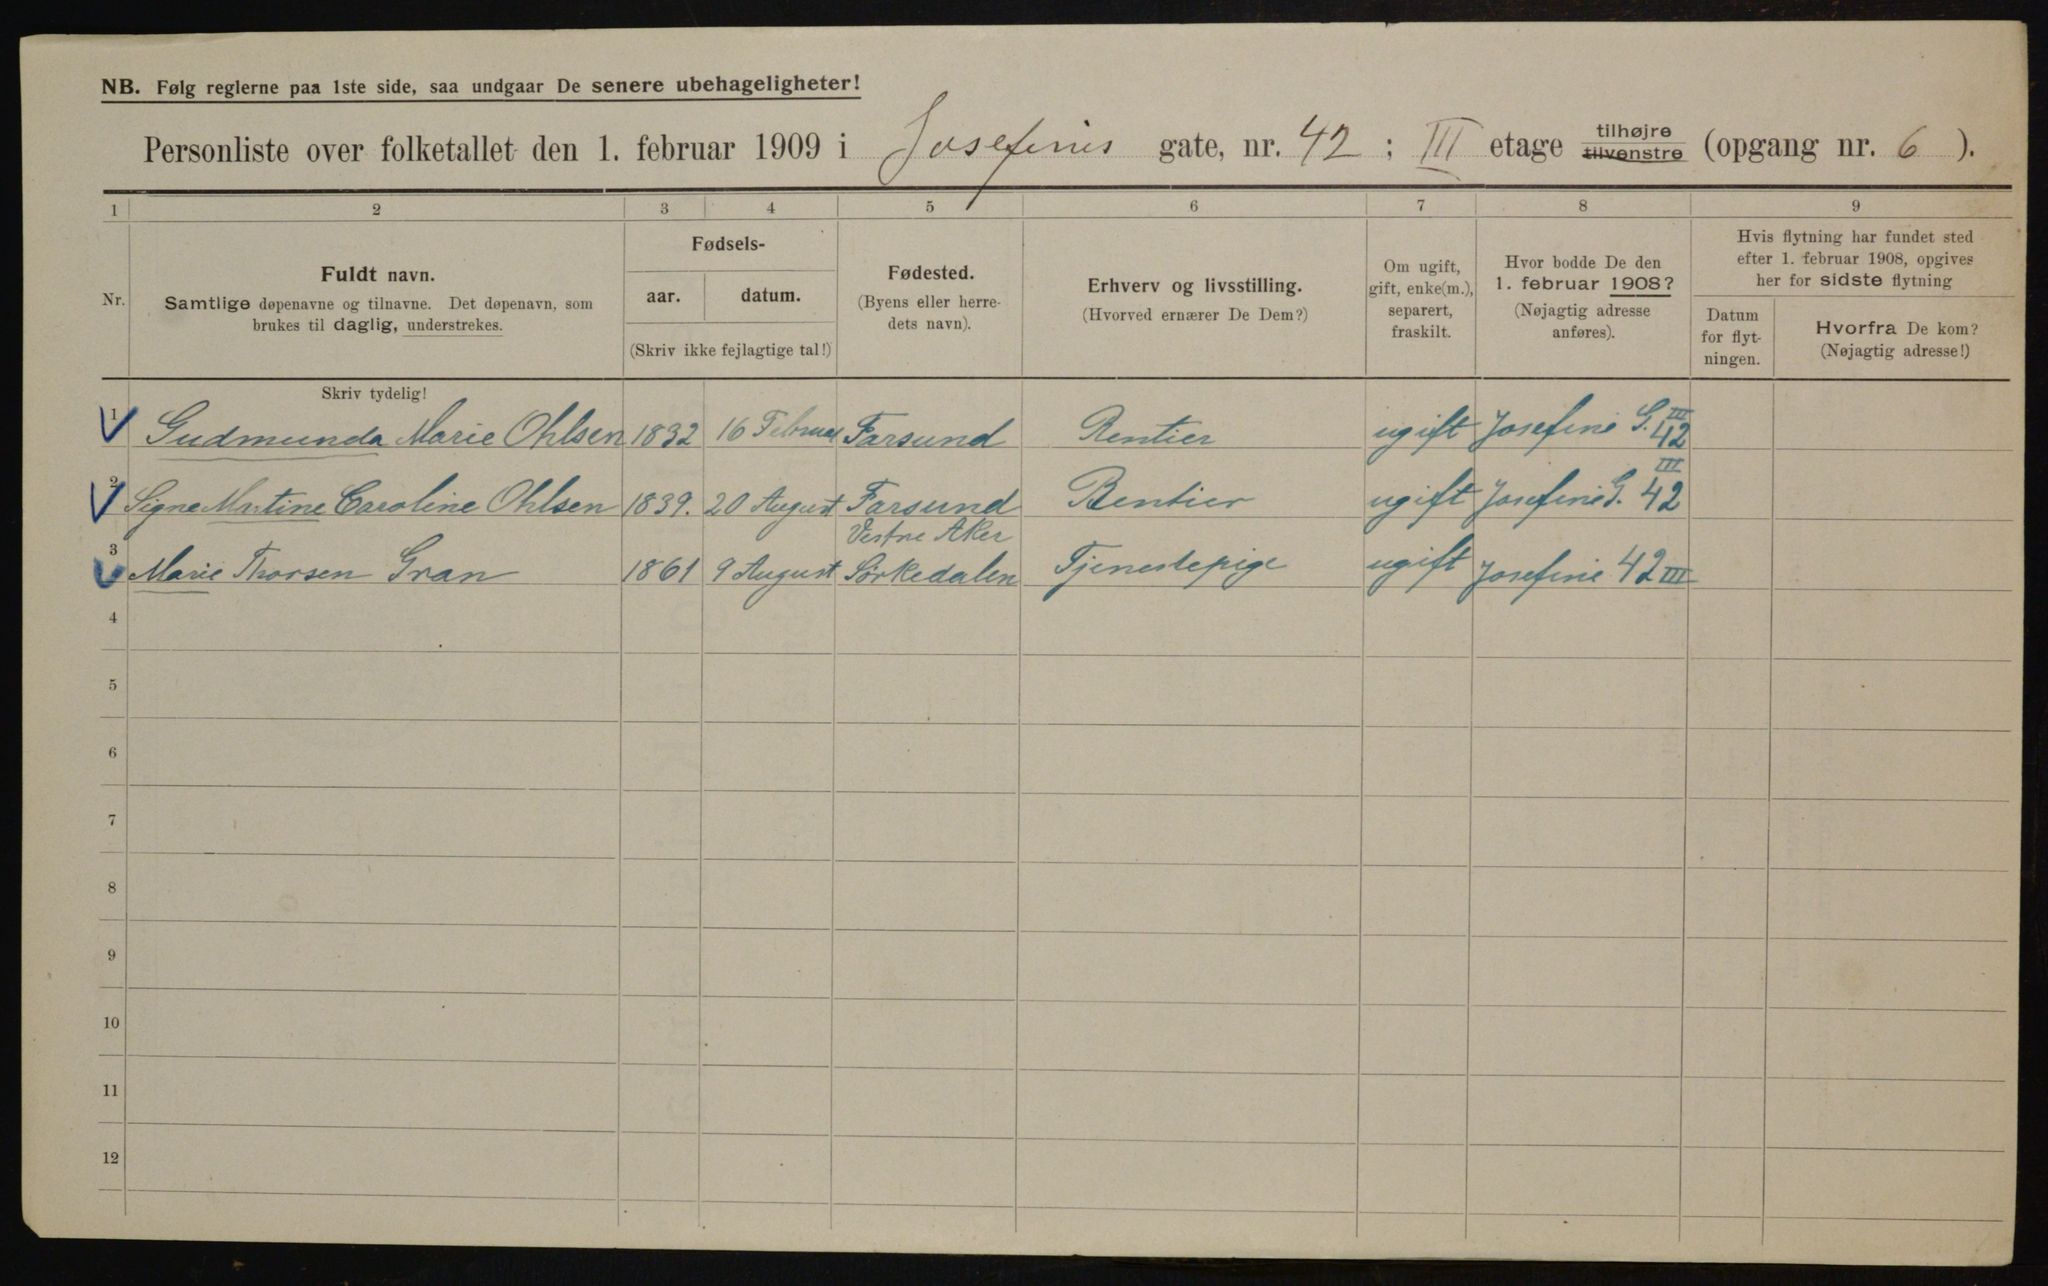 NB. Følg reglerne paa 1ste side, saa undgaar De senere ubehageligheter!
Personliste over folketallet den 1. februar 1909 i Josefines gate, nr. 42; III etage tilhøjre tilvenstre (opgang nr. 6).
1 2 3 4 5 6 7 8 9
Nr.
Fuldt navn.
Samtlige døpenavne og tilnavne. Det døpenavn, som
brukes til daglig, understrekes.
Fødsels-
aar. datum.
(Skriv ikke fejlagtige tal!)
Fødested.
(Byens eller herre-
dets navn).
Erhverv og livsstilling.
(Hvorved ernærer De Dem?)
Om ugift,
gift, enke(m.),
separert,
fraskilt.
Hvor bodde De den
1. februar 1908?
(Nøjagtig adresse
anføres).
Hvis flytning har fundet sted
efter 1. februar 1908, opgives
her for sidste flytning
Datum
for flyt-
ningen.
Hvorfra De kom?
(Nøjagtig adresse!)
Skriv tydelig!
1 Gudmunda Marie Ohlsen 1832 16 Februar Farsund Rentier ugift Josefine G. 42 III
2 Signe Martine Caroline Ohlsen 1839. 20 August Farsund Rentier ugift Josefine G. 42 III
Vestre Aker
3 Marie Thorsen Gran 1861 9 August Sörkedalen Tjenestepige ugift Josefine 42 III
4
5
6
7
8
9
10
11
12